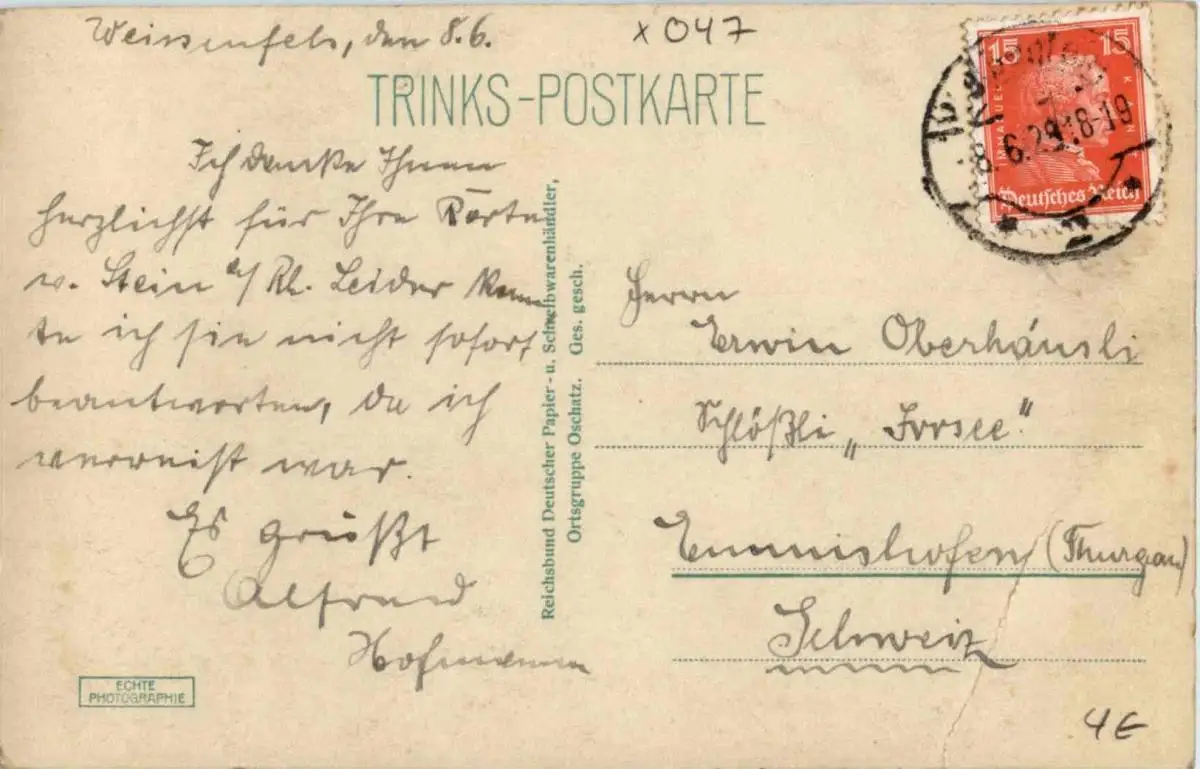 Weissenfels, den 8.6.
x 047
TRINKS-POSTKARTE
Ich danke Ihnen
herzlichst für Ihre Karte
v. Stein a/ Rh. Leider konn
te ich sie nicht sofort
beantworten, da ich
verreist war.
Es grüßt
Alfred
Hofmann
ECHTE
PHOTOGRAPHIE
Reichsbund Deutscher Papier- u. Schreibwarenhändler,
Ortsgruppe Oschatz. Ges. gesch.
15 15
IMMANUEL KANT
Deutsches Reich
8.6.29.18-19
Herrn
Erwin Oberhänsli
Schlößli „Irrsee“
Emmishofen (Thurgau)
Schweiz
4 E